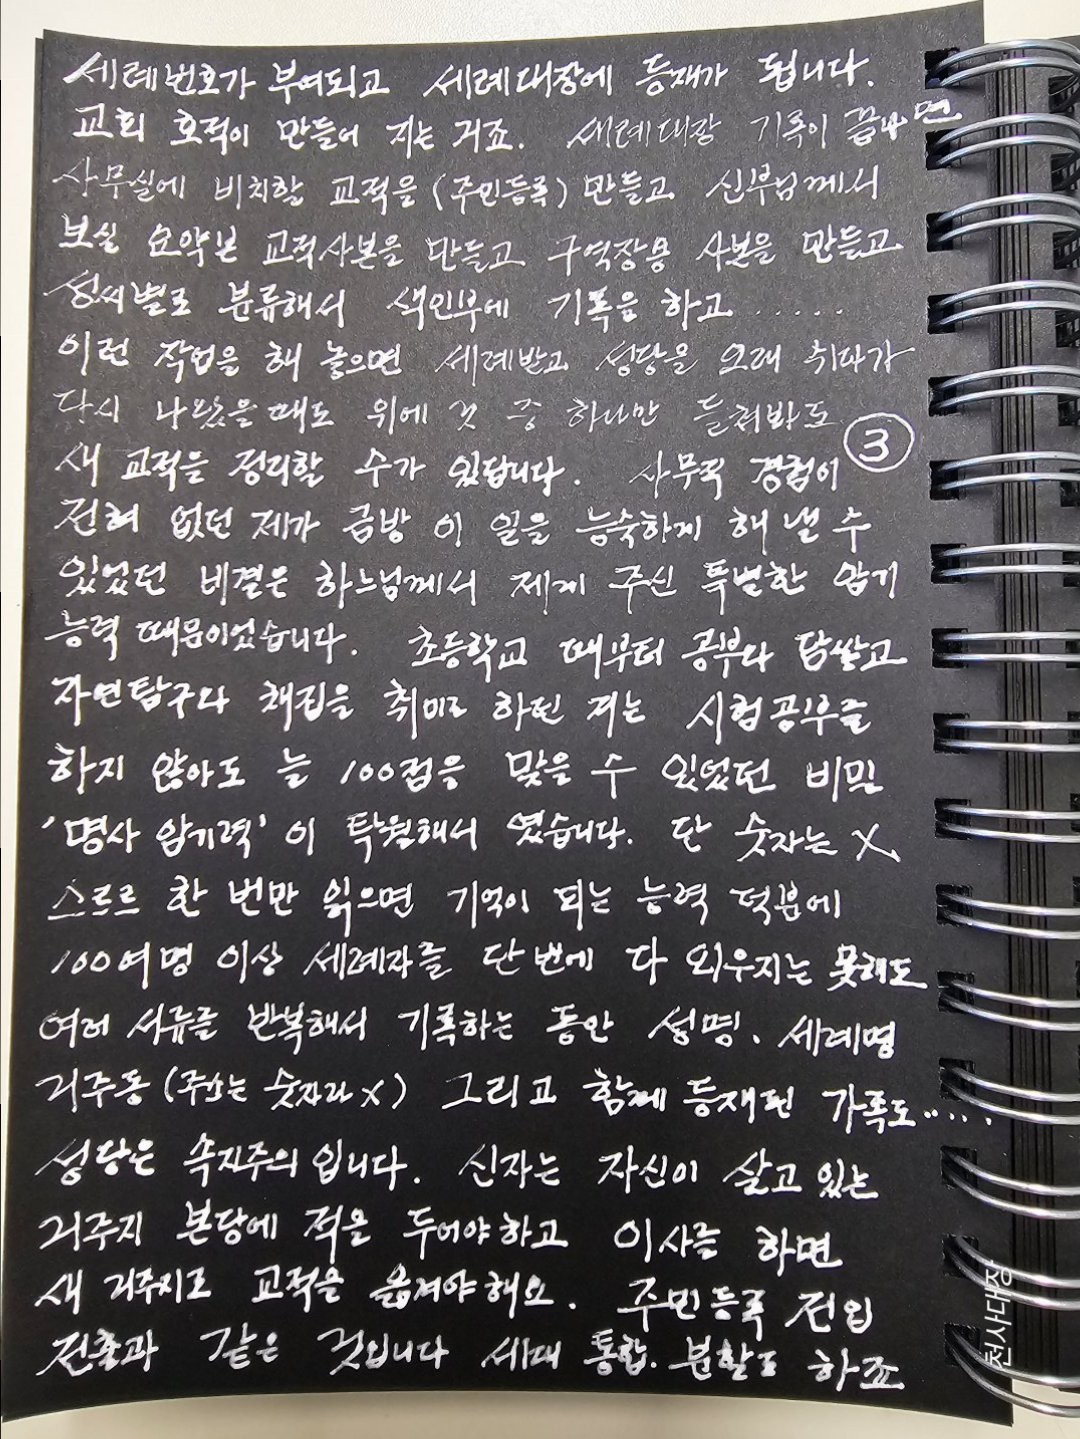 세례번호가 부여되고 세례대장에 등재가 됩니다.
교회 호적이 만들어 지는 거죠. 세례대장 기록이 끝나면
사무실에 비치할 교적을 (주민등록) 만들고 신부님께서
보실 요약본 교적사본을 만들고 구역장용 사본을 만들고
성씨별로 분류해서 색인부에 기록을 하고.....
이런 작업을 해 놓으면 세례받고 성당을 오래 쉬다가
다시 나왔을때도 위에 것 중 하나만 들쳐봐도
③
새 교적을 정리할 수가 있답니다. 사무직 경험이
전혀 없던 제가 금방 이 일을 능숙하게 해 낼 수
있었던 비결은 하느님께서 제게 주신 특별한 암기
능력 때문이었습니다. 초등학교 때부터 공부와 담쌓고
자연탐구와 채집을 취미로 하던 저는 시험공부를
하지 않아도 늘 100점을 맞을 수 있었던 비밀
'명사 암기력' 이 탁월해서 였습니다. 단 숫자는 X
스르르 한 번만 읽으면 기억이 되는 능력 덕분에
100여명 이상 세례자를 단번에 다 외우지는 못해도
여러 서류를 반복해서 기록하는 동안 성명, 세례명
거주동 (주소는 숫자라 X) 그리고 함께 등재된 가족도.....
성당은 속지주의 입니다. 신자는 자신이 살고 있는
거주지 본당에 적을 두어야하고 이사를 하면
새 거주지로 교적을 옮겨야해요. 주민등록 전입
전출과 같은 것입니다 세대 통합. 분할도 하죠
천사대장